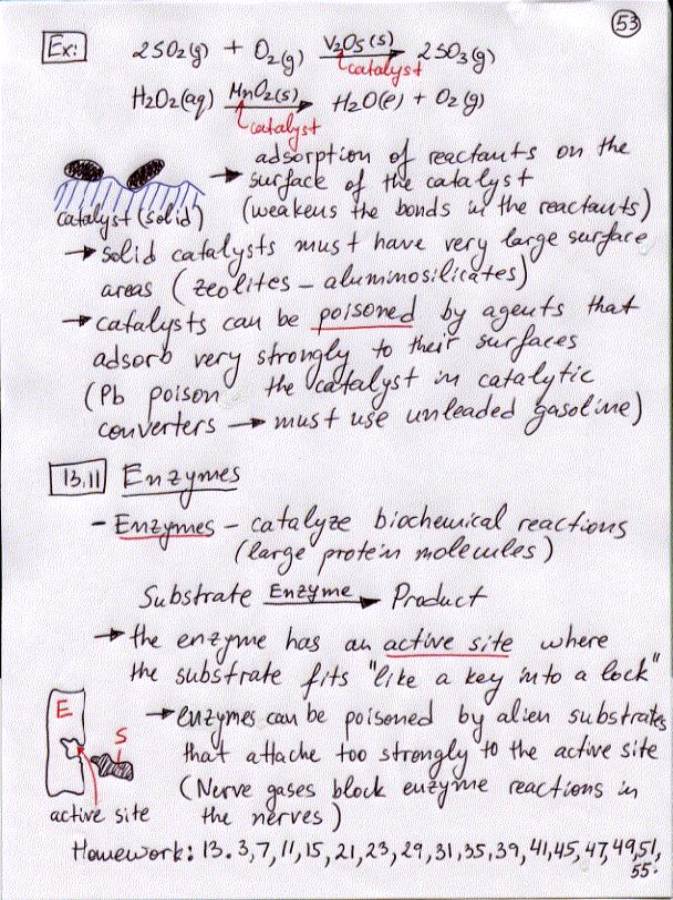 53
Ex: 2SO₂(g) + O₂(g) V₂O₅(s) → 2SO₃(g)
catalyst
H₂O₂(aq) MnO₂(s) → H₂O(l) + O₂(g)
catalyst
→ adsorption of reactants on the
surface of the catalyst
(weakens the bonds in the reactants)
catalyst (solid)
→ solid catalysts must have very large surface
areas (zeolites – aluminosilicates)
→ catalysts can be poisoned by agents that
adsorb very strongly to their surfaces
(Pb poison the catalyst in catalytic
converters → must use unleaded gasoline)
13.11 Enzymes
- Enzymes – catalyze biochemical reactions
(large protein molecules)
Substrate Enzyme → Product
→ the enzyme has an active site where
the substrate fits "like a key into a lock"
E
S
active site
→ enzymes can be poisoned by alien substrates
that attache too strongly to the active site
(Nerve gases block enzyme reactions in
the nerves)
Homework: 13.3,7,11,15,21,23,29,31,35,39,41,45,47,49,51,
55.